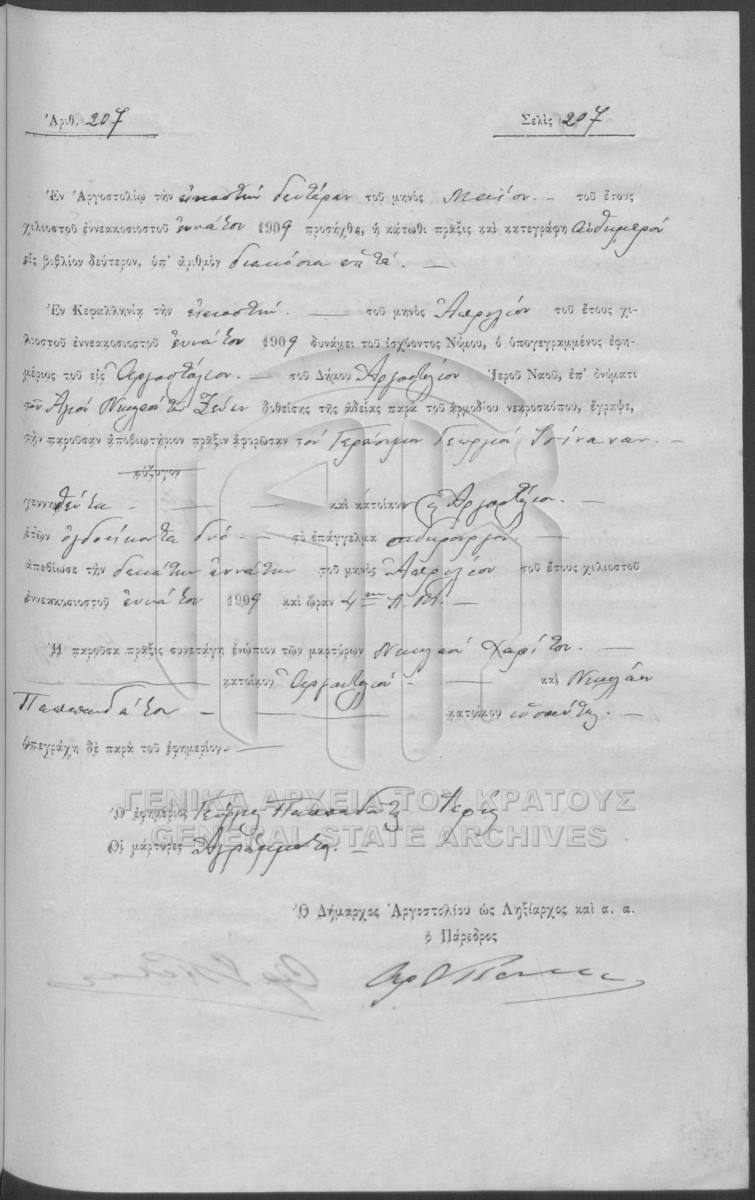 Ἀριθ. 207 Σελὶς 207
Ἐν Ἀργοστολίῳ τὴν εἰκοστὴν δευτέραν τοῦ μηνὸς Μαΐου. — τοῦ ἔτους
χιλιοστοῦ ἐννεακοσιοστοῦ ἐννάτου 1909 προσήχθε, ἡ κάτωθι πρᾶξις καὶ κατεγράφη αὐθημερὸν
εἰς βιβλίον δεύτερον, ὑπ' ἀριθμὸν διακόσια ἑπτά. —
Ἐν Κεφαλληνίᾳ τὴν εἰκοστὴν. — τοῦ μηνὸς Ἀπριλίου τοῦ ἔτους χι-
λιοστοῦ ἐννεακοσιοστοῦ ἐννάτου 1909 δυνάμει τοῦ ἰσχύοντος Νόμου, ὁ ὑπογεγραμμένος ἐφη-
μέριος τοῦ εἰς Ἀργοστόλιον. — τοῦ Δήμου Ἀργοστολίου Ἱεροῦ Ναοῦ, ἐπ' ὀνόματι
τοῦ Ἁγίου Νικολάου τῶν Ξένων δοθείσης τῆς ἀδείας παρὰ τοῦ ἁρμοδίου νεκροσκόπου, ἔγραψε,
τὴν παροῦσαν ἀποβιωτήριον πρᾶξιν ἀφορῶσαν τὸν Γεράσιμον Γεωργίου —
σύζυγον
γεννηθέντα — — καὶ κάτοικον Ἀργοστολίου. —
ἐτῶν ὀγδοήκοντα δύο — τὸ ἐπάγγελμα σιδηρουργόν. —
ἀπεβίωσε τὴν δεκάτην ἐννάτην τοῦ μηνὸς Ἀπριλίου τοῦ ἔτους χιλιοστοῦ
ἐννεακοσιοστοῦ ἐννάτου 1909 καὶ ὥραν 4ην π. μ. —
Ἡ παροῦσα πρᾶξις συνετάγη ἐνώπιον τῶν μαρτύρων Νικολάου Χαρίτου. —
— κατοίκου Ἀργοστολίου — καὶ Νικολάου
Παππαδάτου — — κατοίκου —
ὑπεγράχη δὲ παρὰ τοῦ ἐφημερίου —
ΓΕΝΙΚΑ ΑΡΧΕΙΑ ΤΟΥ ΚΡΑΤΟΥΣ
Ὁ ἐφημέριος Γεώργιος Παππαδάτος Ἱερεὺς
GENERAL STATE ARCHIVES
Οἱ μάρτυρες Ἀγράμματοι. —
Ὁ Δήμαρχος Ἀργοστολίου ὡς Ληξίαρχος καὶ α. α.
ὁ Πάρεδρος